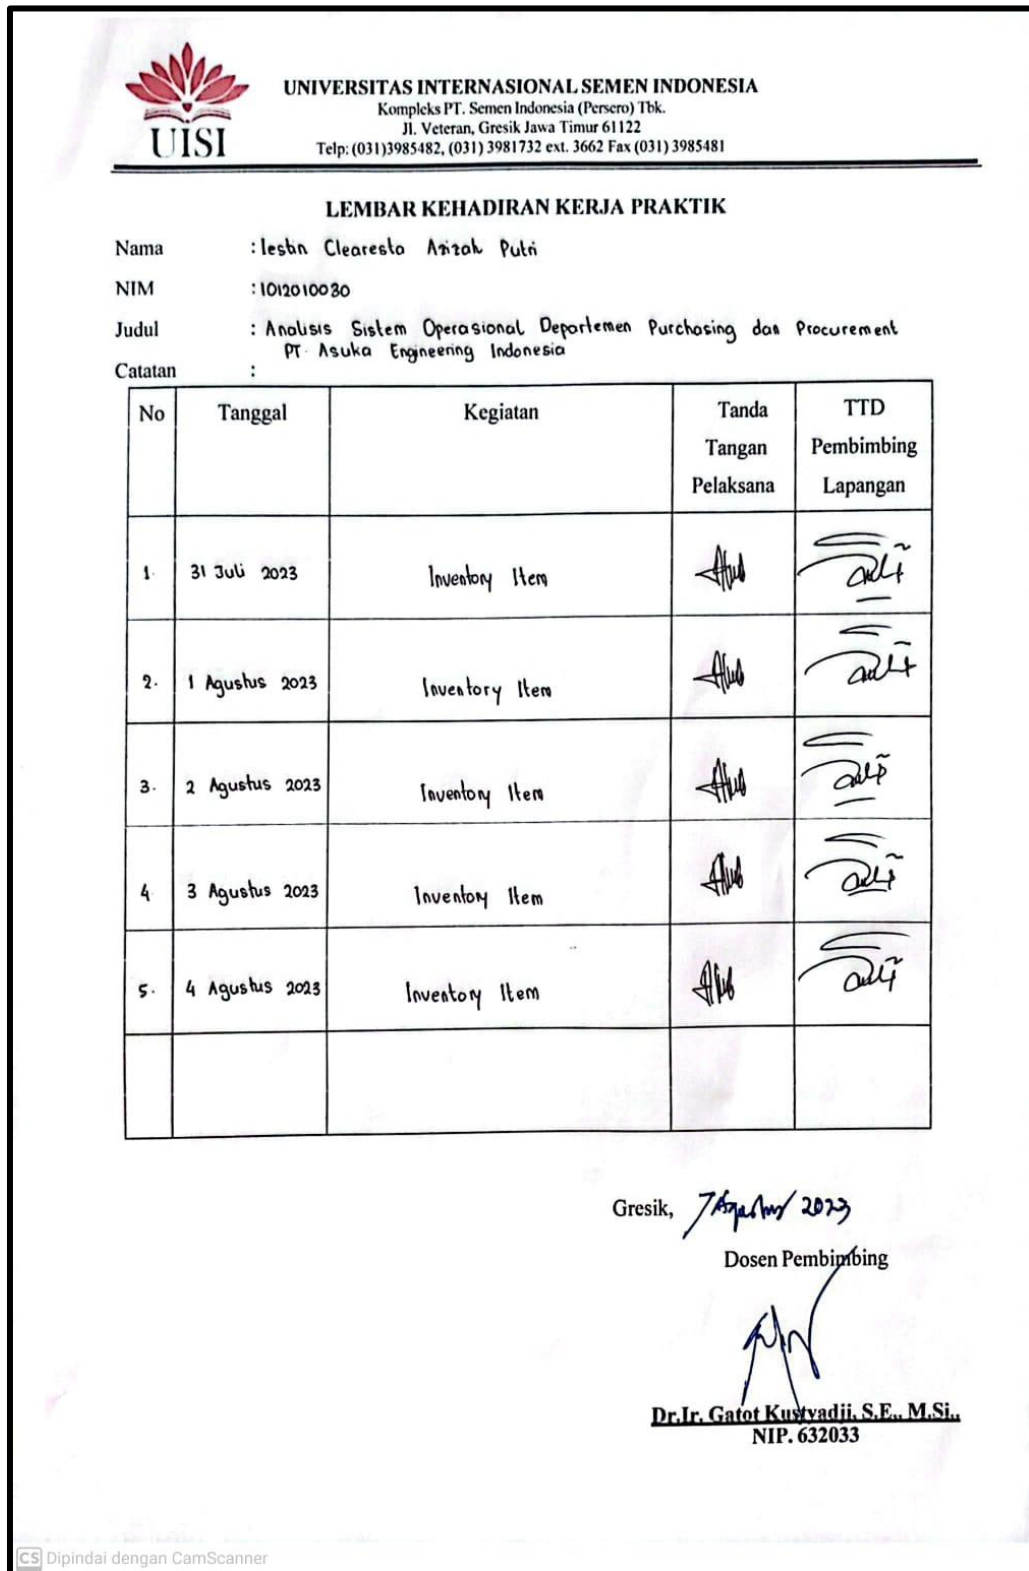 UISI
UNIVERSITAS INTERNASIONAL SEMEN INDONESIA
Kompleks PT. Semen Indonesia (Persero) Tbk.
Jl. Veteran, Gresik Jawa Timur 61122
Telp: (031)3985482, (031) 3981732 ext. 3662 Fax (031) 3985481
LEMBAR KEHADIRAN KERJA PRAKTIK
Nama : Clearesta Azizah Putri
NIM : 1012010030
Judul : Analisis Sistem Operasional Departemen Purchasing dan Procurement
PT. Asuka Engineering Indonesia
Catatan :
No Tanggal Kegiatan Tanda Tangan Pelaksana TTD Pembimbing Lapangan
1. 31 Juli 2023 Inventory Item
2. 1 Agustus 2023 Inventory Item
3. 2 Agustus 2023 Inventory Item
4 3 Agustus 2023 Inventory Item
5. 4 Agustus 2023 Inventory Item
Gresik, 7 Agustus 2023
Dosen Pembimbing
Dr.Ir. Gatot Kustyadji, S.E., M.Si.,
NIP. 632033
CS Dipindai dengan CamScanner